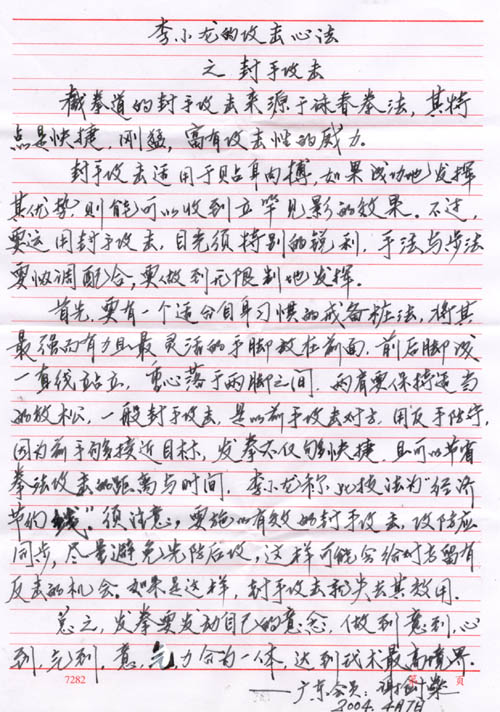 李小龙的攻击心法
之封手攻击
截拳道的封手攻击来源于咏春拳法，其特
点是快捷，刚猛，富有攻击性的威力。
封手攻击适用于贴身肉搏，如果成功地发挥
其优势，则能可以收到立竿见影的效果。不过，
要运用封手攻击，目光须特别的锐利，手法与步法
要协调配合，要做到无限制地发挥。
首先，要有一个适合自身习惯的戒备桩法，将其
最强而有力且最灵活的手脚放在前面，前后脚成
一直线站立，重心落于两脚之间，两肩要保持适当
的放松，一般封手攻击，是以前手攻击对方，用反手防守，
因为前手够接近目标，发拳不仅够快捷，且可以节省
拳法攻击的距离与时间，李小龙称此技法为"经济
节约线"。须注意，要施以有效的封手攻击，攻防应
同步，尽量避免先防后攻，这样可能会给对方留有
反击的机会。如果是这样，封手攻击就失去其效用。
总之，发拳要发动自己的意念，做到意到，心
到，气到，意，气力合为一体，达到武术最高境界。
7282 第 页
——广东会员：谢剑荣
2004.4月7日